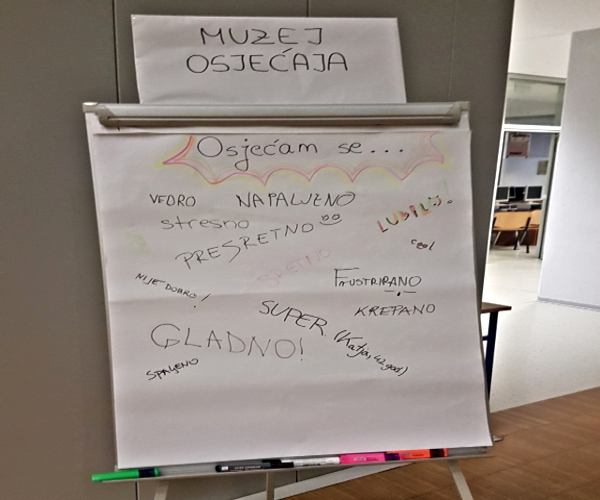 MUZEJ
OSJEĆAJA
Osjećam se...
VEDRO NAPALJENO
stresno
LUDILO!
PRESRETNO
cool
SRETNO
NIJE DOBRO!
FRUSTRIRANO
SUPER (Katja, 42 god)
KREPANO
GLADNO!
SPALJENO